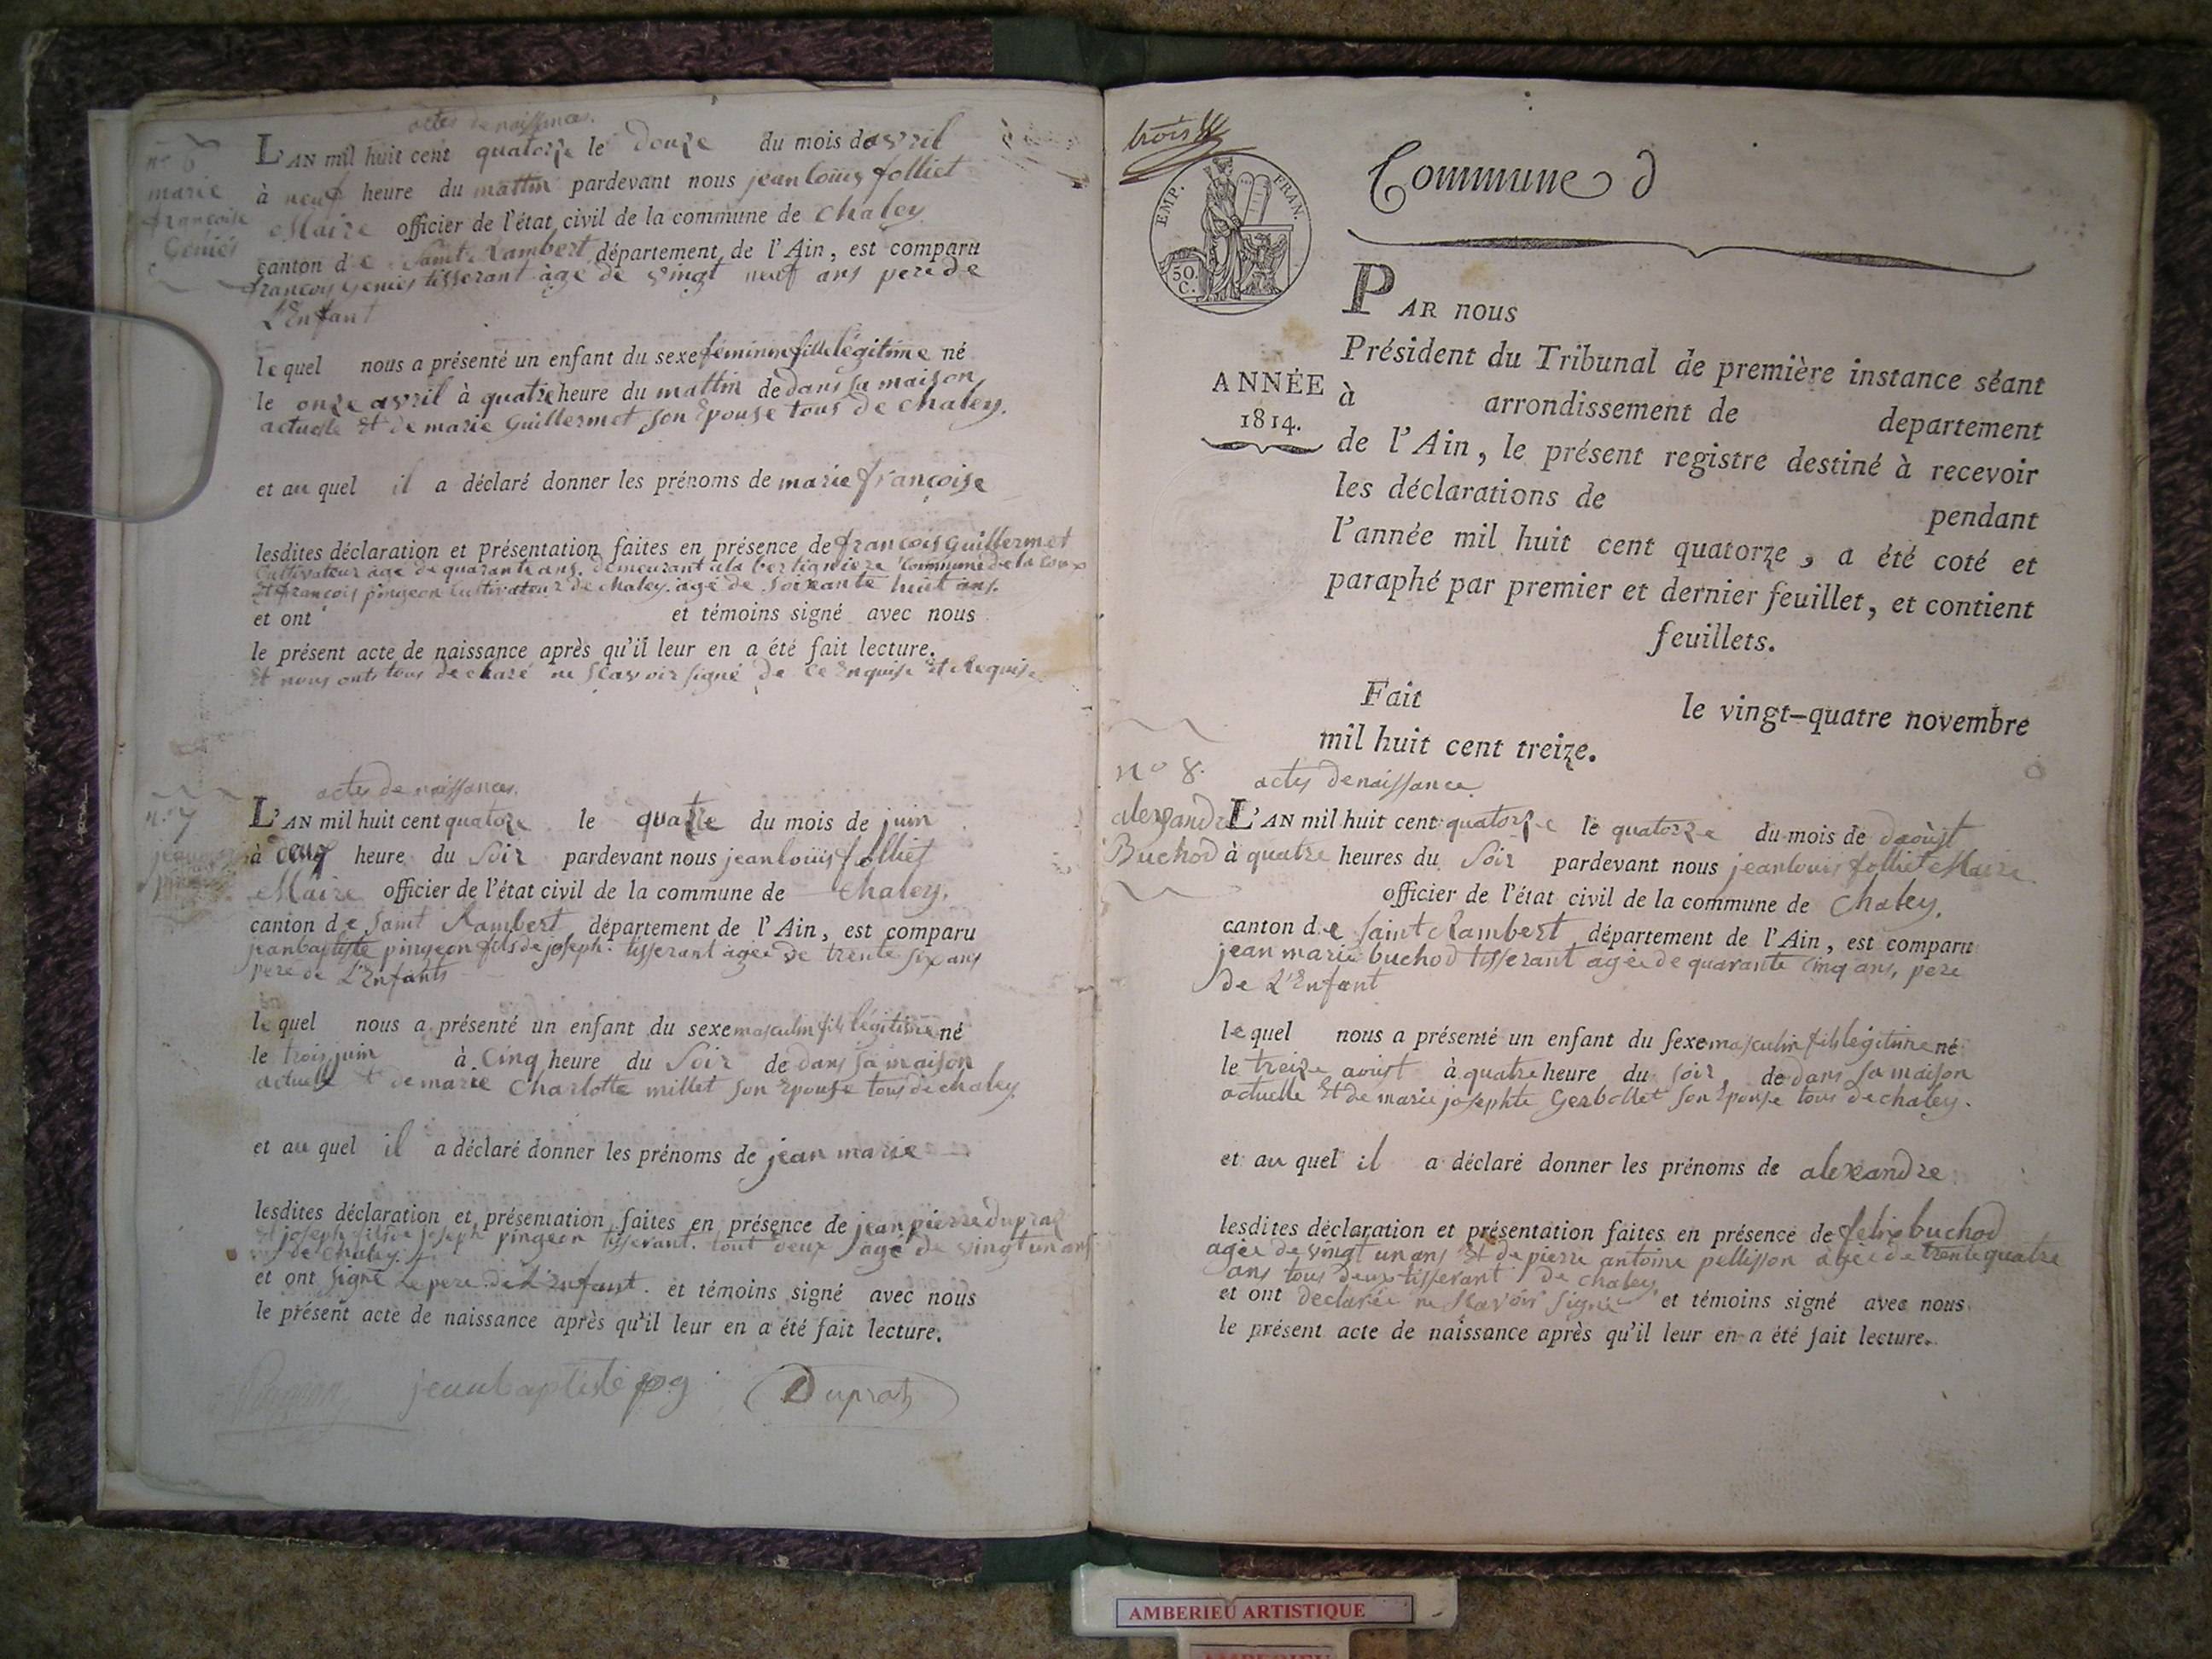 actes de naissances.
n° 6
marie
françoise
Geniés
L'AN mil huit cent quatorze le douze du mois davril
à neuf heure du mattin pardevant nous jean louis folliet
Maire officier de l'état civil de la commune de Chaley
canton de Saint Rambert département de l'Ain, est comparu
françois Geniés tisserant àge de vingt neuf ans pere de
L'Enfant
lequel nous a présenté un enfant du sexe féminin fille légitime né
le onze avril à quatre heure du mattin de dans sa maison
actuelle Et de marie Guillermet son Epouse tous de chaley.
et au quel il a déclaré donner les prénoms de marie françoise
lesdites déclaration et présentation faites en présence de françois Guillermet
Cultivateur age de quarante ans, demeurant à la bertigniere Commune de la Coux
Et françois pingeon Cultivateur de chaley. agé de Soixante huit ans.
et ont et témoins signé avec nous
le présent acte de naissance après qu'il leur en a été fait lecture.
Et nous onts tous declaré ne Scavoir signé de ce Enquise Et Requise
actes de naissances.
n° 7
L'AN mil huit cent quatorze le quatre du mois de juin
à deux heure du Soir pardevant nous jean louis folliet
Maire officier de l'état civil de la commune de Chaley.
canton de Saint Rambert département de l'Ain, est comparu
jean baptiste pingeon fils de joseph. tisserant agée de trente six ans
pere de L'Enfants
lequel nous a présenté un enfant du sexe masculin fils légitime né
le trois juin à Cinq heure du Soir de dans sa maison
actuelle Et de marie Charlotte millet son Epouse tous de chaley.
et au quel il a déclaré donner les prénoms de jean marie
lesdites déclaration et présentation faites en présence de jean pierre dupraz
Et joseph fils de joseph pingeon tisserant. tout deux agé de vingt un ans
de chaley.
et ont signé Le pere de L'Enfant. et témoins signé avec nous
le présent acte de naissance après qu'il leur en a été fait lecture.
jean baptiste pg Dupraz
trois
EMP. FRAN.
50 C.
Commune d
ANNÉE
1814.
PAR nous
Président du Tribunal de première instance séant
à arrondissement de departement
de l'Ain, le présent registre destiné à recevoir
les déclarations de pendant
l'année mil huit cent quatorze, a été coté et
paraphé par premier et dernier feuillet, et contient
feuillets.
Fait le vingt-quatre novembre
mil huit cent treize.
n° 8.
alexandre
Buchod
actes de naissance.
L'AN mil huit cent quatorze le quatorze du mois de daoùst
à quatre heures du Soir pardevant nous jean louis folliet Maire
officier de l'état civil de la commune de Chaley,
canton de Saint Rambert département de l'Ain, est comparu
jean marie buchod tisserant agée de quarante cinq ans, pere
de L'Enfant
lequel nous a présenté un enfant du sexe masculin fils légitime né
le treize aoust à quatre heure du soir, de dans sa maison
actuelle Et de marie josephte Gerbollet son Epouse tous de chaley.
et au quel il a déclaré donner les prénoms de alexandre
lesdites déclaration et présentation faites en présence de felix buchod
agée de vingt un ans Et de pierre antoine pellisson agée de trente quatre
ans tous deux tisserant de chaley.
et ont declarée ne Scavoir signé et témoins signé avec nous
le présent acte de naissance après qu'il leur en a été fait lecture.
AMBERIEU ARTISTIQUE
AMBERIEU